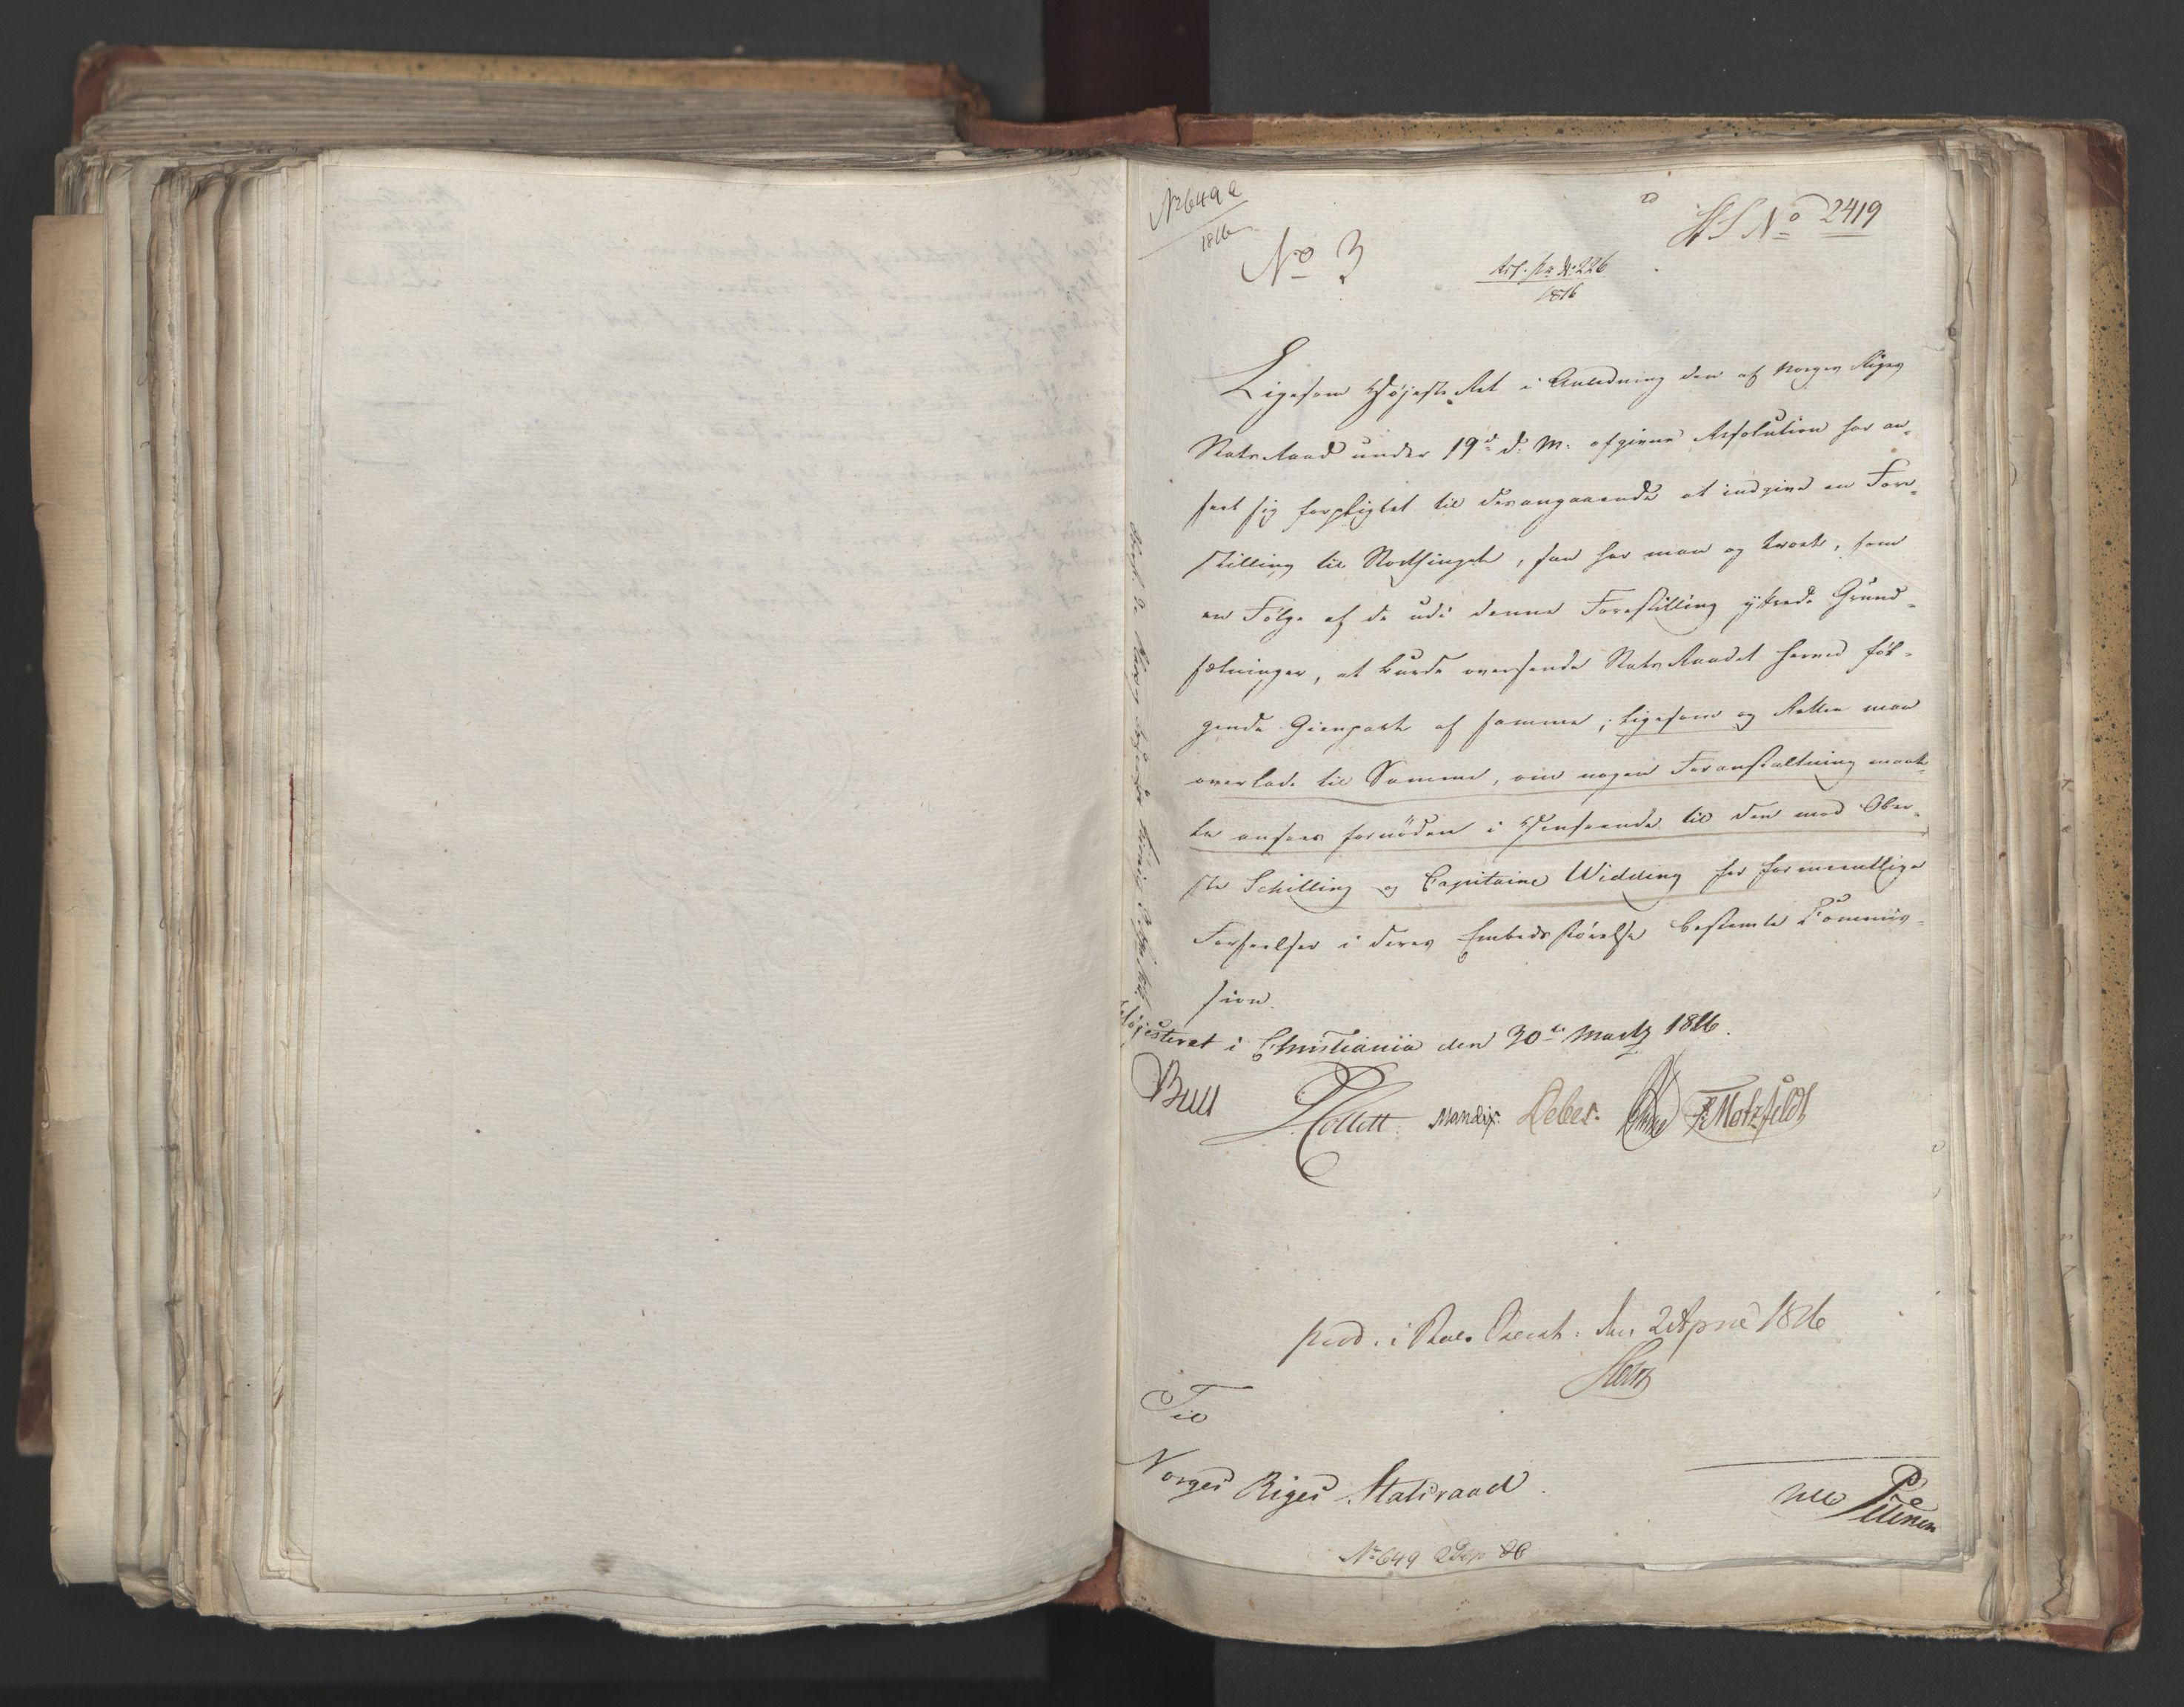 No 649 a
1816
No 3
Ref. Pr. No 226
1816
HS No 2419
Ligesom Højeste Ret i Anledning den af Norges Riges
Stats Raad under 19d d: M: afgivne Resolution har an-
seet sig forpligtet til desangaaende at indgive en Fore-
stilling til Storthinget, saa har man og troet, som
en Følge af de udi denne Forestilling yttrede Grund-
sætninger, at burde oversende Stats Raadet herved føl-
gende Gienpart af samme; ligesom og Retten maa
overlade til Samme, om nogen Foranstaltning maat-
te ansees fornöden i Henseende til den mod Ober-
ste Schilling og Capitaine Widding for formeentlige
Forseelser i deres Embeds förelse bestemte Commis-
sion.
Højesteret i Christiania den 30te Martz 1816.
Bull
PCollett
Mandix.
Debes.
Motzfeldt
præs. i den 2 April 1816
Til
Norges Riges Statsraad.
No 649 86